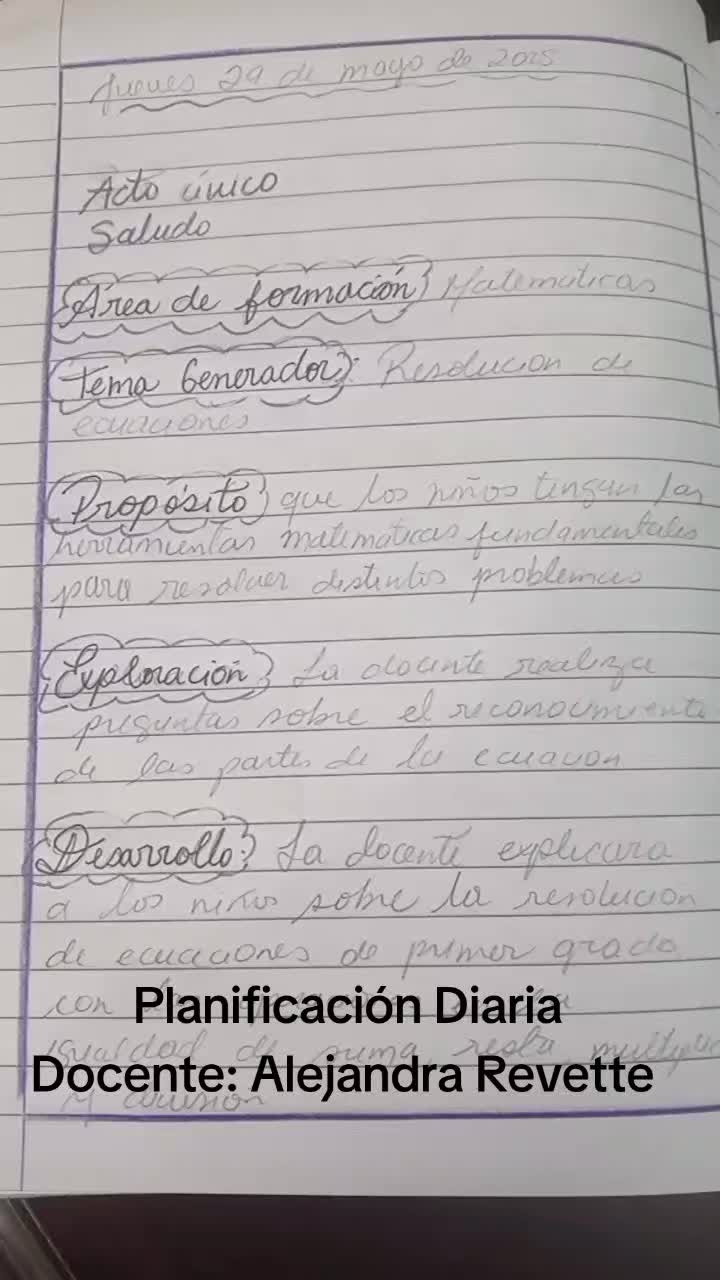 Jueves 29 de mayo de 2025
Acto cívico
Saludo
Área de formación Matematicas
Tema Generador: Resolucion de
ecuaciones
Propósito que los niños tengan las
herramientas matematicas fundamentales
para resolver distintos problemas
Exploración: La docente realiza
preguntas sobre el reconocimiento
de las partes de la ecuacion
Desarrollo: La docente explicara
a los niños sobre la resolucion
de ecuaciones de primer grado
con
Planificación Diaria
igualdad de suma, resta, multiplic
Docente: Alejandra Revette
y division